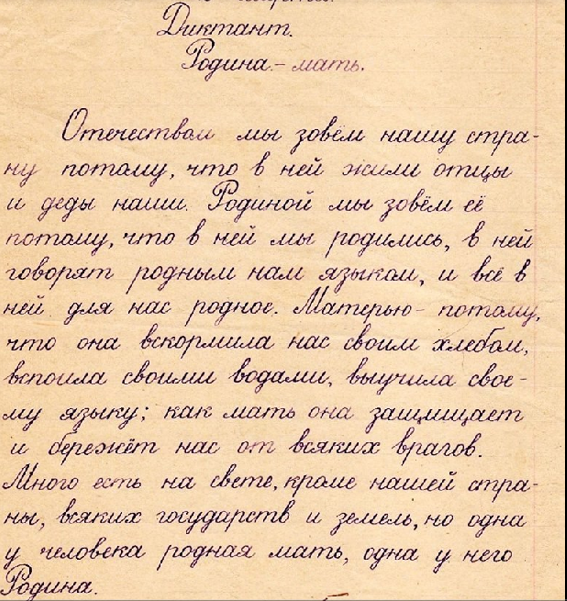 Диктант.
Родина - мать.
Отечеством мы зовём нашу стра-
ну потому, что в ней жили отцы
и деды наши. Родиной мы зовём её
потому, что в ней мы родились, в ней
говорят родным нам языком, и всё в
ней для нас родное. Матерью - потому,
что она вскормила нас своим хлебом,
вспоила своими водами, выучила свое-
му языку; как мать она защищает
и бережёт нас от всяких врагов.
Много есть на свете, кроме нашей стра-
ны, всяких государств и земель, но одна
у человека родная мать, одна у него
Родина.